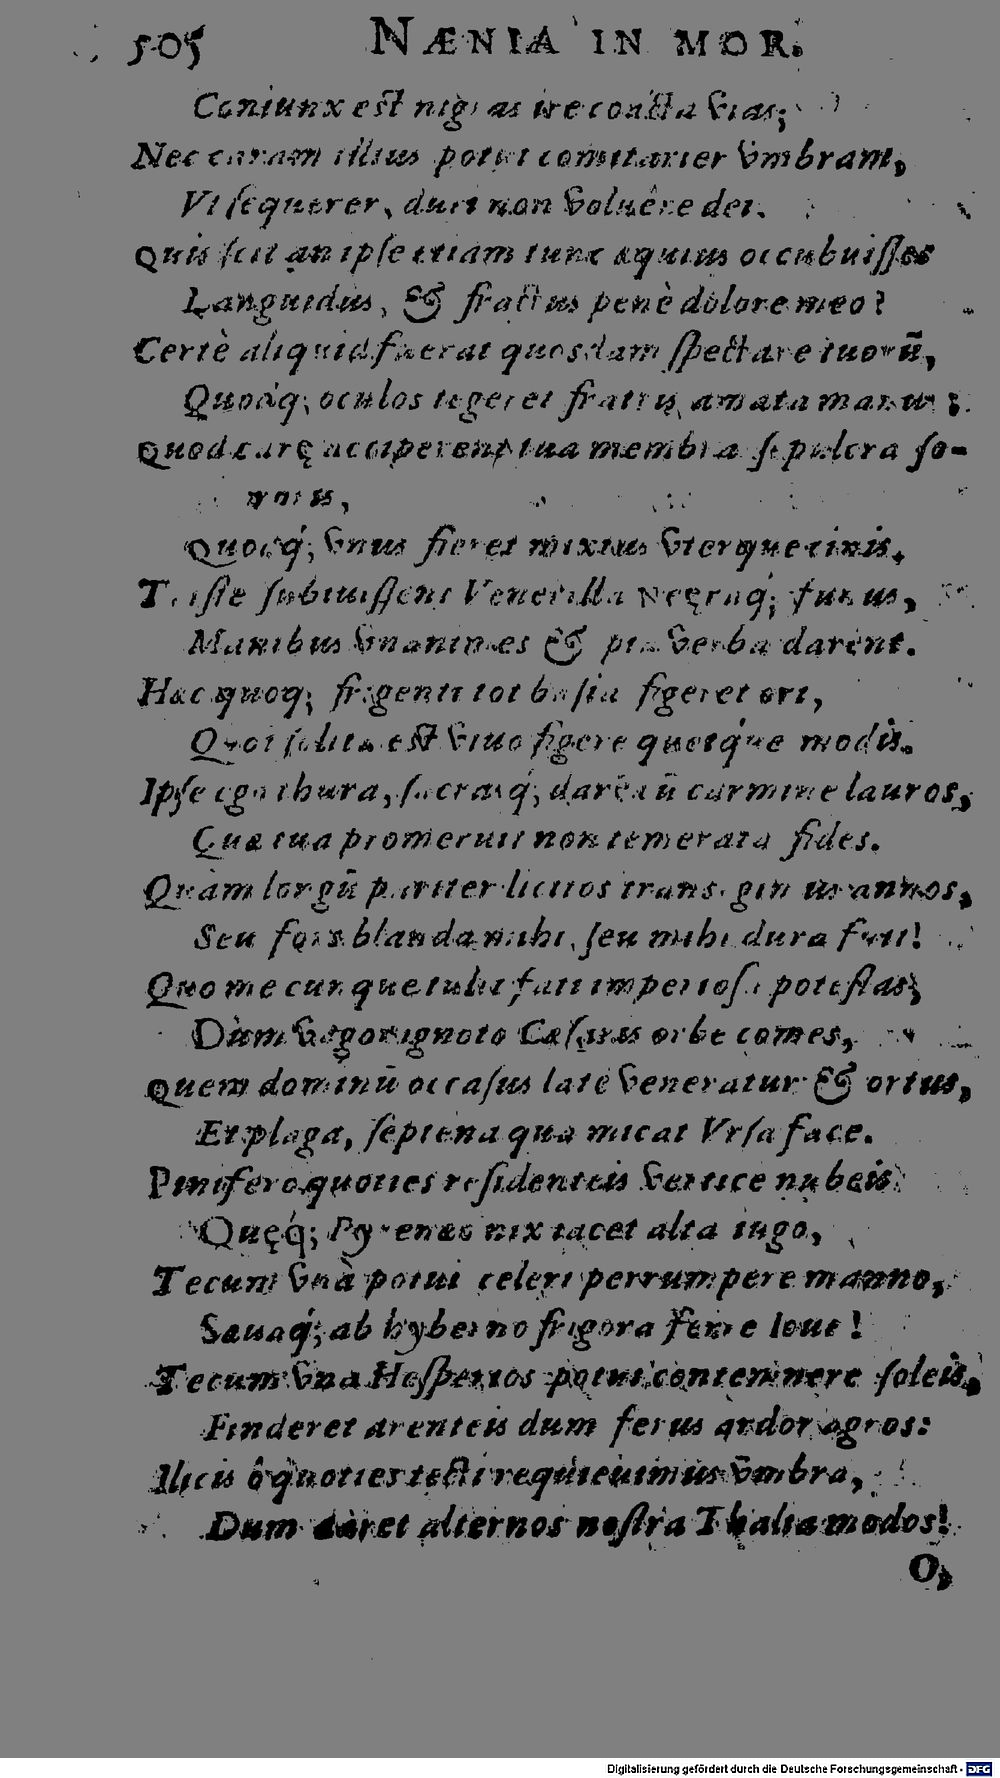 505 NÆNIA IN MOR.
Coniunx est nigras ire coacta vias;
Nec caram illius potui comitarier vmbram,
Vt sequerer, duri non voluêre dei.
Quis scit an ipse etiam tunc æquius occubuisses
Languidus, & fractus penè dolore meo?
Certè aliquid fuerat quosdam spectare tuorũ,
Quodq́; oculos tegeret fratris amata manus:
Quod caræ acciperent tua membra sepulcra so-
roris,
Quodq́; vnus fieret mixtus vterque cinis.
Triste subiuissent Venerilla Neęraq́; funus,
Manibus vnanimes & pia verba darent.
Hæc quoq; frigenti tot basia figeret ori,
Quot solita est viuo figere quotq́ue modis.
Ipse ego thura, sacrasq́; darẽ cũ carmine lauros,
Quæ tua promeruit non temerata fides.
Quàm longũ pariter licitos transigimus annos,
Seu fors blanda mihi, seu mihi dura fuit!
Quo me cunque tulit fati imperiosa potestas;
Dum vagor ignoto Cæsaris orbe comes,
Quem dominũ occasus latè veneratur & ortus,
Et plaga, septena qua micat Vrsa face.
Pinifero quoties residenteis vertice nubeis
Quęq́; Pyrenæo nix iacet alta iugo,
Tecum vnà potui celeri perrumpere manno,
Sæuaq́; ab hyberno frigora ferre Ioue!
Tecum vna Hesperios potui contemnere soleis,
Finderet arenteis dum ferus ardor agros:
Ilicis ô quoties tecti requieuimus vmbra,
Dum daret alternos nostra Thalia modos!
O,
Digitalisierung gefördert durch die Deutsche Forschungsgemeinschaft - DFG